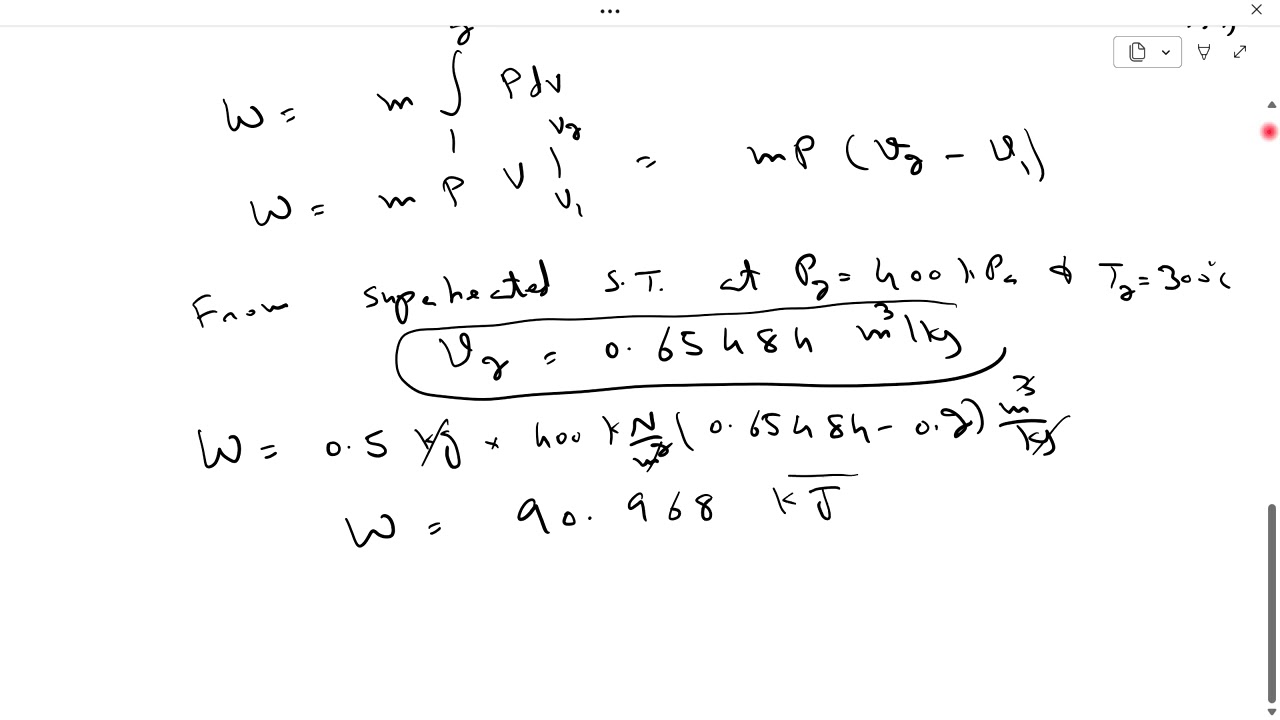 2
W = m ∫ P dv
1
W = m P V |V2 V1 = mP (V2 - V1)
From superheated S.T. at P2 = 400 kPa & T2 = 300°C
V2 = 0.65484 m³/kg
W = 0.5 kg × 400 kN/m² (0.65484 - 0.2) m³/kg
W = 90.968 kJ